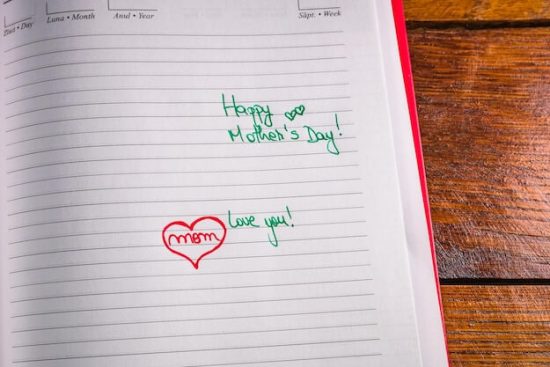 Ziua • Day Luna • Month Anul • Year Săpt. • Week
Happy
Mother's Day!
love you!
mom